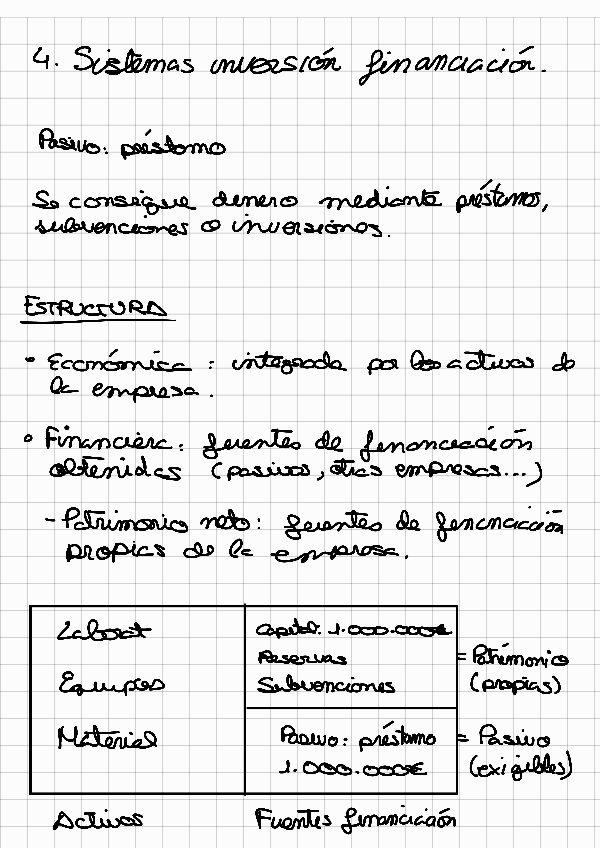 4. Sistemas inversión financiación.
Pasivo: préstamo
Se consigue dinero mediante préstamos,
subvenciones o inversiones.
ESTRUCTURA
• Económica: integrada por los activos de
la empresa.
• Financiera: fuentes de financiación
obtenidas (pasivos, otras empresas...)
- Patrimonio neto: fuentes de financiación
propias de la empresa.
Capital: 1.000.000€
Reservas
= Patrimonio
Equipos
Subvenciones
(propias)
Material
Pasivo: préstamo
= Pasivo
1.000.000€
(exigibles)
Activos
Fuentes financiación